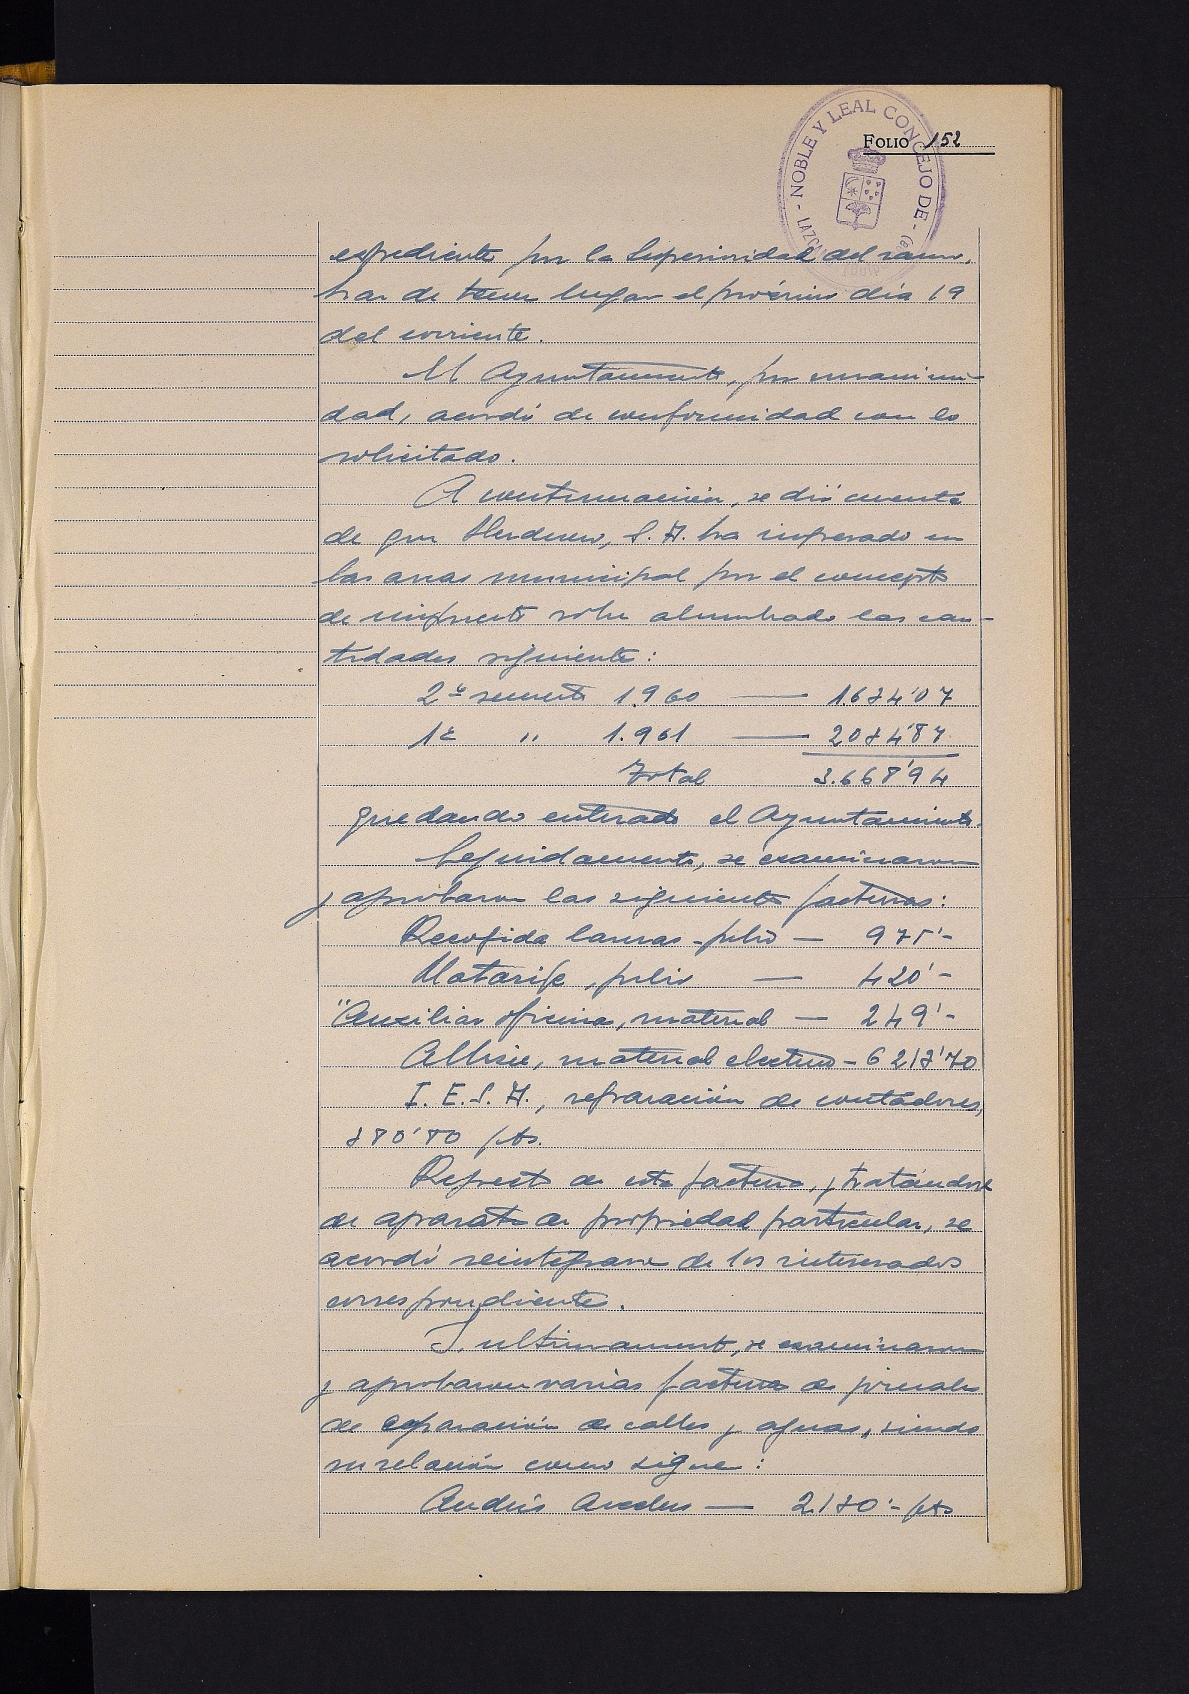 FOLIO 152
- NOBLE Y LEAL CONCEJO DE -
expediente por la Superioridad del ramo,
han de tener lugar el próximo día 19
del corriente.
El Ayuntamiento, por unanimi-
dad, acordó de conformidad con lo
solicitado.
A continuación, se dió cuenta
de que S. A. ha ingresado en
las arcas municipal por el concepto
de impuesto sobre alumbrado las can-
tidades siguiente:
2º semestre 1.960 — 1.634'07
1º " 1.961 — 2034'87
Total 3.668'94
quedando enterado el Ayuntamiento.
Seguidamente, se examinaron
y aprobaron las siguientes facturas:
Recogida basuras - julio — 975'-
Matarife, julio — 420'-
"Auxiliar oficina, material — 249'-
material electrico - 6213'70
I. E. S. A., reparación de contadores,
380'80 pts.
Respecto de esta factura, y tratándose
de aparatos de propiedad particular, se
acordó reintegrarse de los interesados
correspondientes.
Y, ultimamente, se examinaron
y aprobaron varias facturas de jornales
de reparación de calles y aguas, siendo
su relación como sigue:
Andrés — 2130'- pts